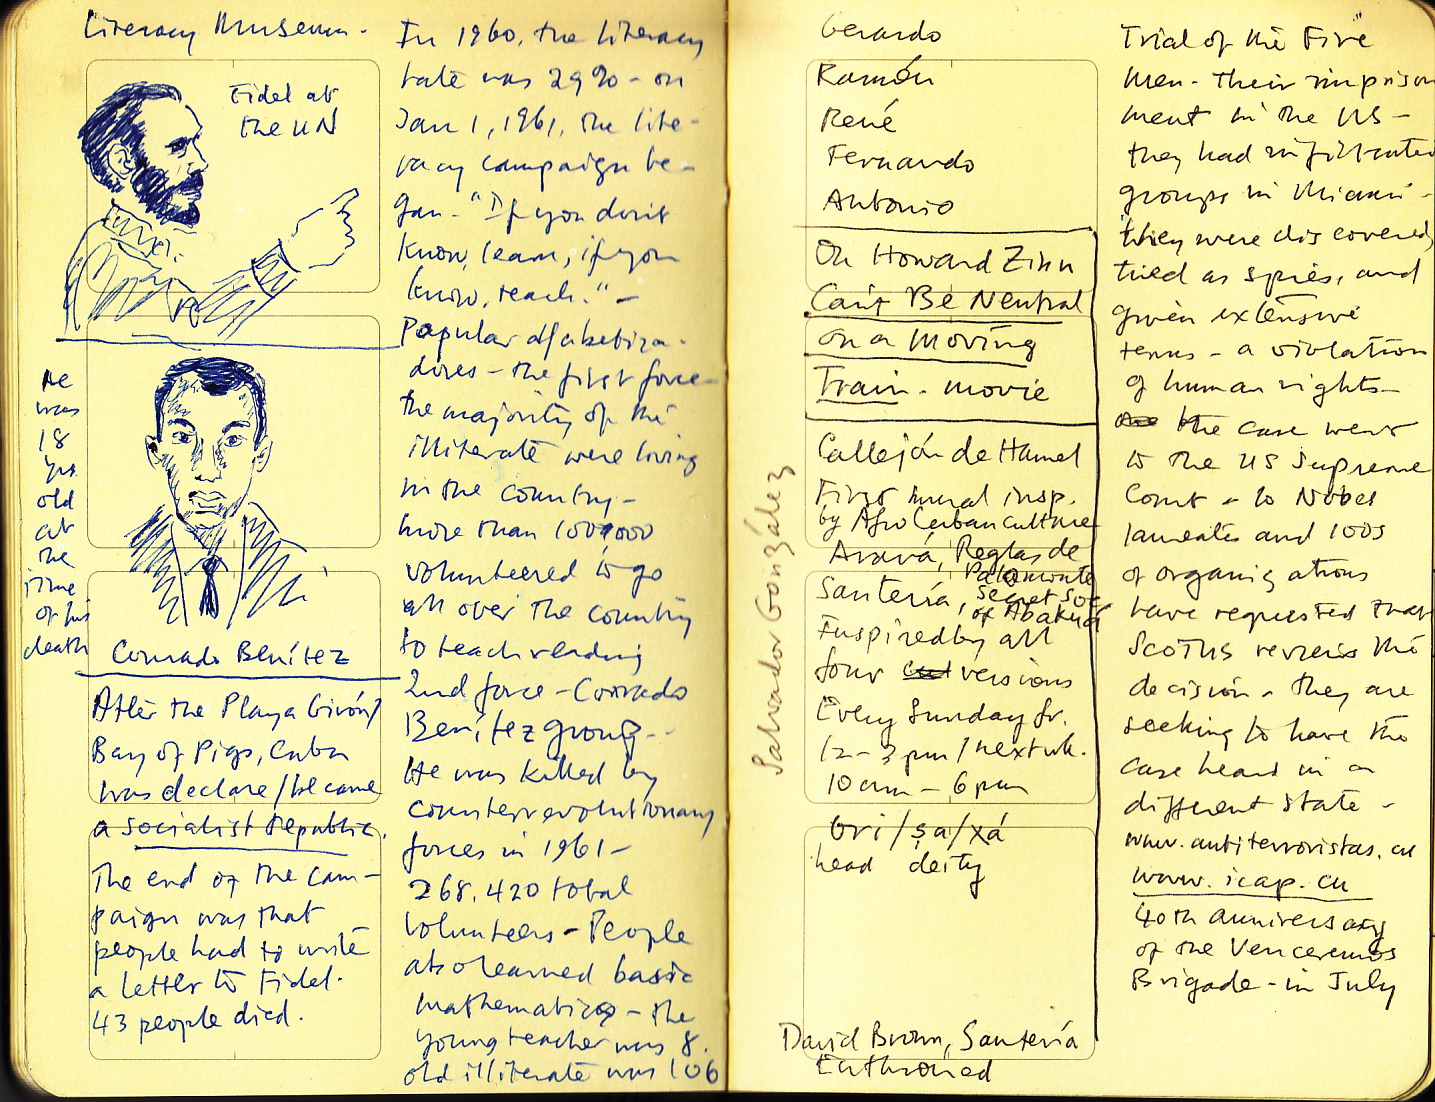 Literacy Museum -
Fidel at
the UN
He
was
18
yrs
old
at
the
time
of his
death
Conrado Benítez
After the Playa Girón/
Bay of Pigs, Cuba
was declare/became
a socialist republic.
The end of the cam-
paign was that
people had to write
a letter to Fidel.
43 people died.
In 1960, the literacy
rate was 29% - on
Jan 1, 1961, the lite-
racy campaign be-
gan - "If you don't
know, learn, if you
know, teach." -
Popular alfabetiza-
dores - the first force
the majority of the
illiterate were living
in the country -
more than 100,000
volunteered to go
all over the country
to teach reading
2nd force - Conrado
Benítez group --
He was killed by
counterrevolutionary
forces in 1961 -
268,420 total
volunteers - People
also learned basic
mathematics - the
young teacher was 8.
old illiterate was 106
Gerardo
Ramón
René
Fernando
Antonio
On Howard Zinn
Can't Be Neutral
on a Moving
Train - movie
Salvador González
Callejón de Hamel
First mural insp.
by AfroCuban culture
Arará, Reglas de
Palo monte
Santería, secret soc
of Abakuá
Inspired by all
four versions
Every Sunday fr.
12 - 3 pm / next wk.
10 am - 6 pm
Ori/ṣa/xá
head deity
David Brown, Santería
Enthroned
Trial of the Five
Men - their imprison
ment in the US -
they had infiltrated
groups in Miami -
they were discovered,
tried as spies, and
given extensive
terms - a violation
of human rights -
the case went
to the US Supreme
Court - 10 Nobel
laureates and 100s
of organizations
have requested that
SCOTUS reverse the
decision - they are
seeking to have the
case heard in a
different state -
www.antiterroristas.cu
www.icap.cu
40th anniversary
of the Venceremos
Brigade - in July